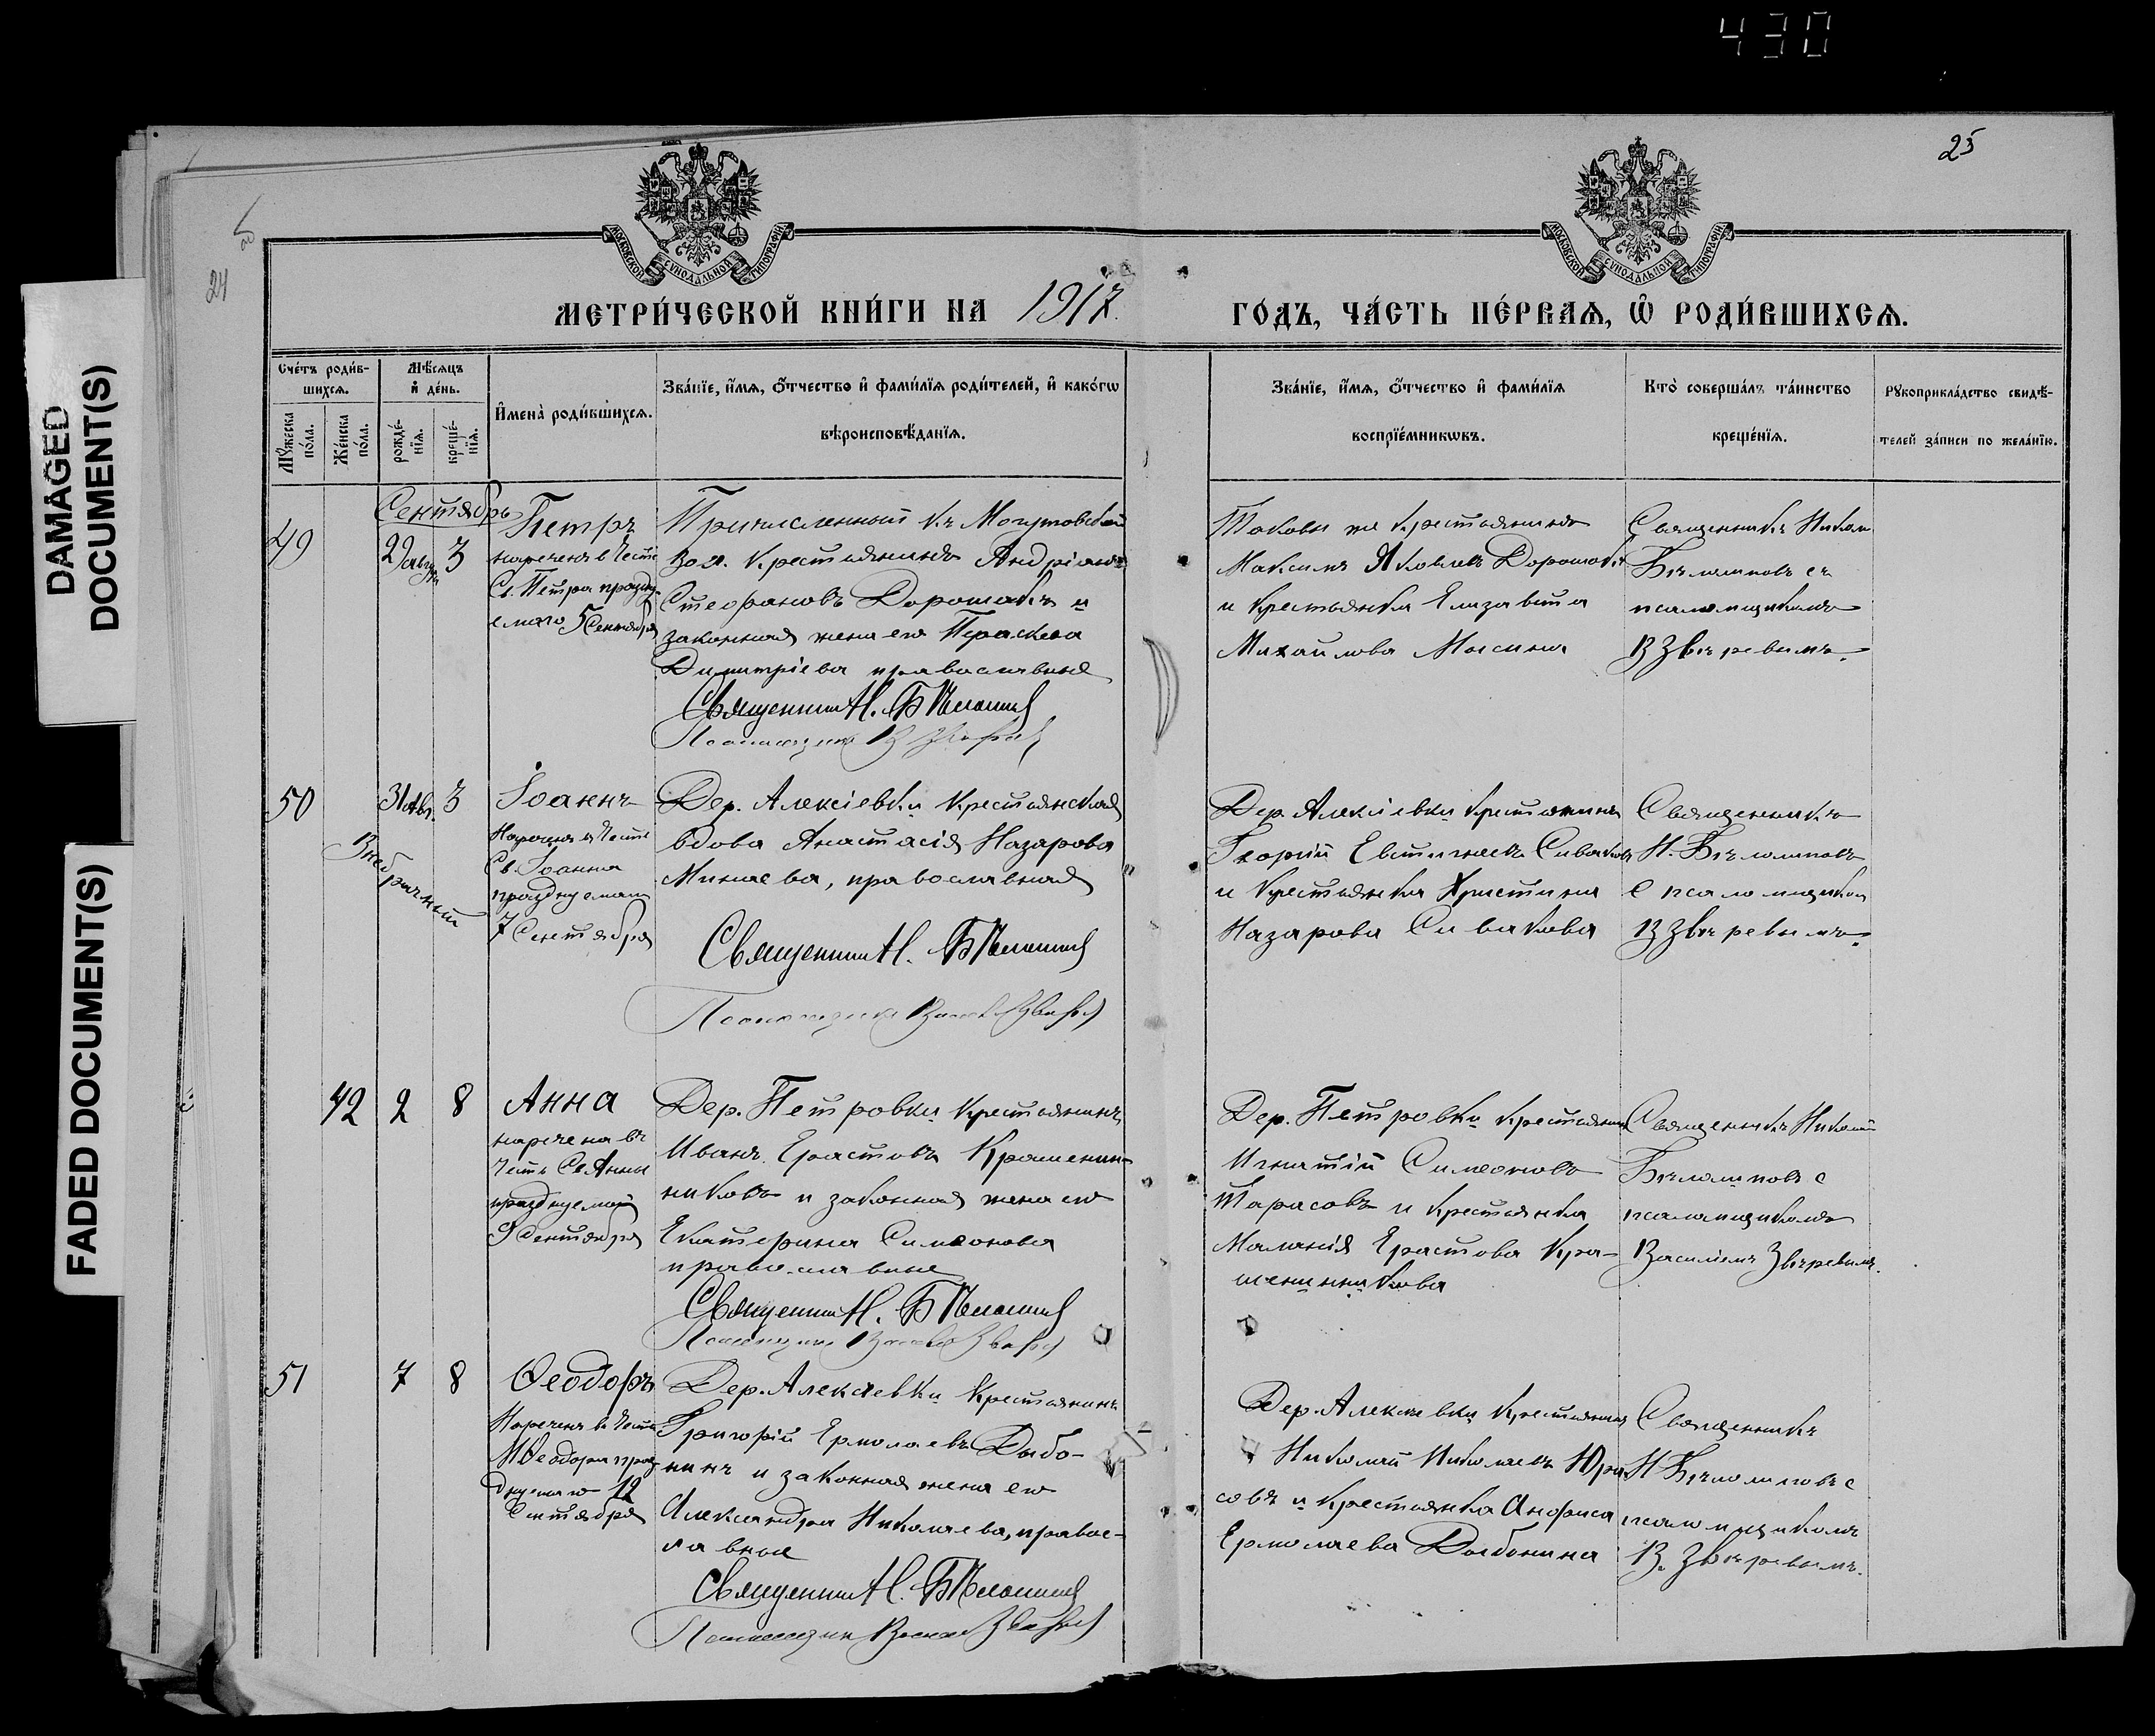 430
DAMAGED
DOCUMENT(S)
FADED DOCUMENT(S)
24
25
МОСКОВСКОЙ СѴНОДАЛЬНОЙ ТИПОГРАФІИ
МОСКОВСКОЙ СѴНОДАЛЬНОЙ ТИПОГРАФІИ
МЕТРИ́ЧЕСКОЙ КНИ́ГИ НА 1917 ГО́ДЪ, ЧА́СТЬ ПЕ́РВАѦ, Ѽ РОДИ́ВШИХСѦ.
Сче́тъ роди́в-
шихсѧ.
Мꙋ́жеска
по́ла.
Же́нска
по́ла.
Мѣ́сѧцъ
и҆ де́нь.
рожде́-
нїѧ.
креще́-
нїѧ.
И҆мена̀ роди́вшихсѧ.
Зва́нїе, и҆́мѧ, ѻ҆́тчество и҆ фами́лїѧ роди́телей, и҆ како́гѡ
вѣроисповѣ́данїѧ.
Зва́нїе, и҆́мѧ, ѻ҆́тчество и҆ фами́лїѧ
воспрїе́мникѡвъ.
Кто̀ соверша́лъ та́инство
креще́нїѧ.
Рꙋкоприкла́дство свидѣ́-
телей за́писи по жела́нїю.
Сентябрь
49
29 авгус 3
Петръ
нареченъ в честь
Св. Петра праздну-
емаго 5 Сентября
Причисленный къ Могутовской
вол. крестьянинъ Андріанъ
Стефановъ Дорошокъ и
законная жена его Параскева
Димитріева православные
Священник Н. Бѣломыт
Псаломщик В Звѣрев
Таковы же крестьянинъ
Максимъ Яковлевъ Дорошокъ
и крестьянка Елизавета
Михайлова Мысина
Священникъ Никол
съ
псаломщикомъ
В Звѣревымъ
50
31 Авг. 3
Внебрачный
Іоаннъ
Нареченъ в честь
Св. Іоанна
празднуемаго
7 Сентября
Дер. Алексіевки крестьянская
вдова Анастасія Назарова
Минаева, православная
Священник Н.
Псаломщик Василій Звѣрев
Дер. Алексіевки крестьянинъ
Георгій Евстигнеевъ Сиваковъ
и крестьянка Христина
Назарова Сивакова
Священникъ
Н.
с псаломщиком
В Звѣревымъ
42 2 8
Анна
наречена въ
честь Св Анны
празднуемой
9 Сентября
Дер. Петровки крестьянинъ
Иванъ Ерастовъ Крашенин-
никовъ и законная жена его
Екатерина Симеонова
православные
Священник Н.
Псаломщик Василій Звѣрев
Дер. Петровки крестьянинъ
Игнатій Симеоновъ
Тарасовъ и крестьянка
Маланія Ерастова Кра-
шенинникова
Священникъ Николай
с
псаломщикомъ
Василіемъ Звѣревымъ.
51 7 8
Ѳеодоръ
Нареченъ в честь
М Ѳеодора праз-
днуемаго 12
Сентября
Дер. Алексіевки крестьянинъ
Григорій Ермолаевъ Дыбо-
нинъ и законная жена его
Александра Николаева, правос-
лавные
Священник Н.
Псаломщик Василій Звѣрев
Дер. Алексіевки крестьянинъ
Николай Николаевъ Юра-
совъ и крестьянка Анфиса
Ермолаева Дыбонина
Священникъ
Н с
псаломщикомъ
В. Звѣревымъ.